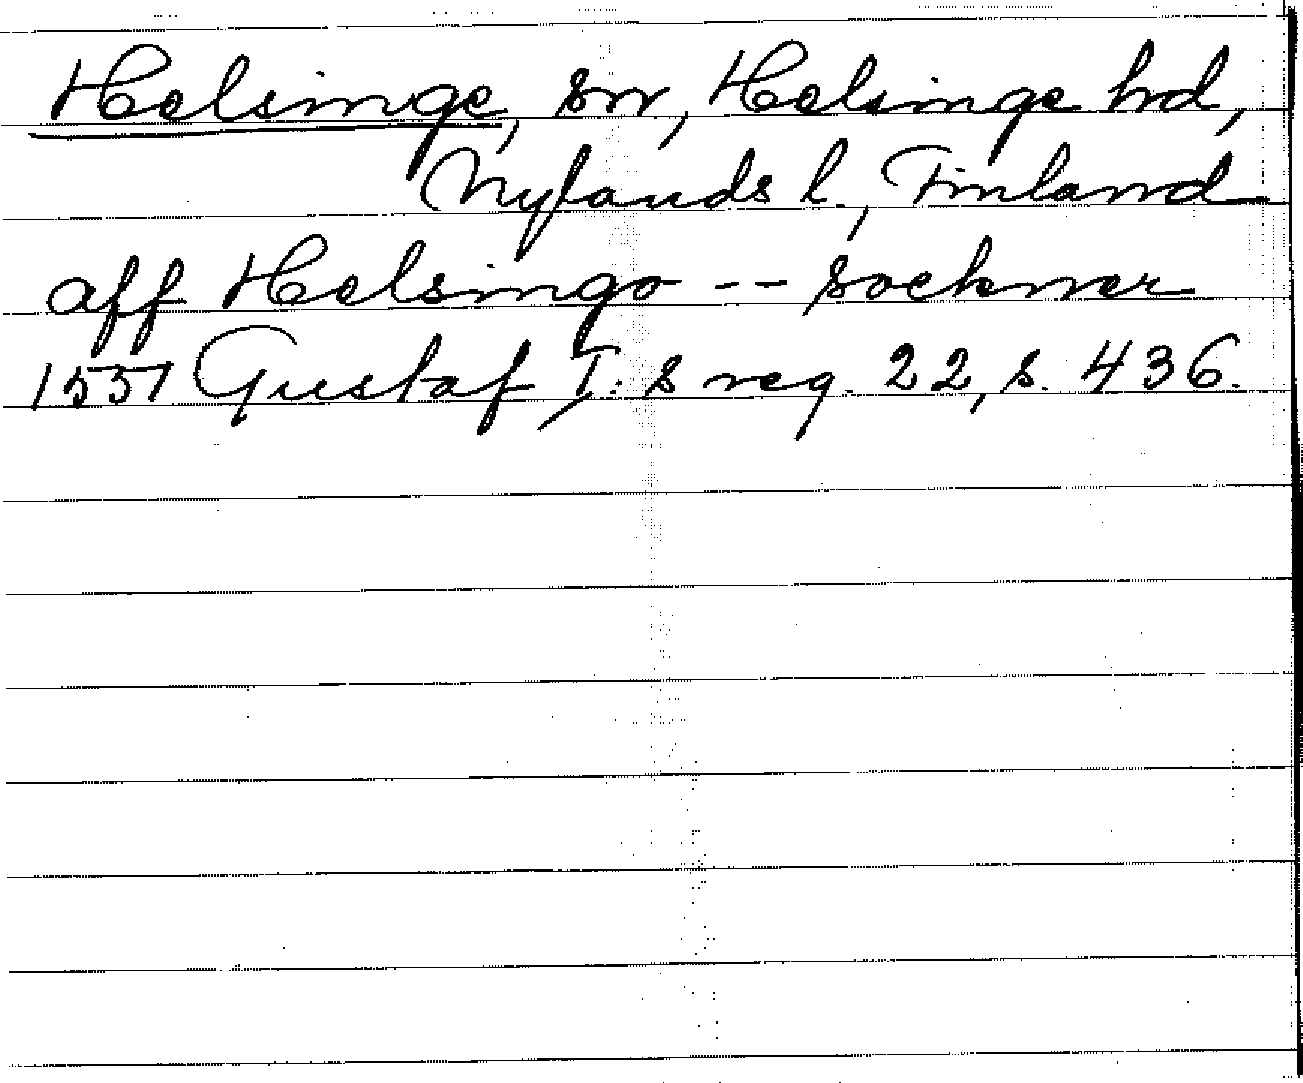 Helsinge, sn, Helsinge hd,
Nylands l., Finland
aff Helsingo -- sockner
1551 Gustaf I:s reg. 22, s. 436.